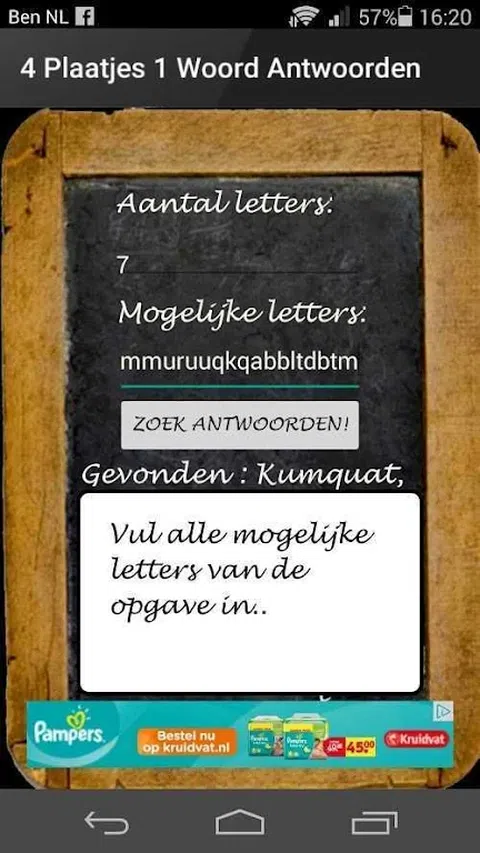 Ben NL 57% 16:20
4 Plaatjes 1 Woord Antwoorden
Aantal letters:
7
Mogelijke letters:
mmuruuqkqabbltdbtm
ZOEK ANTWOORDEN!
Gevonden : Kumquat,
Vul alle mogelijke
letters van de
opgave in..
Pampers
Bestel nu
op kruidvat.nl
45.00
Kruidvat